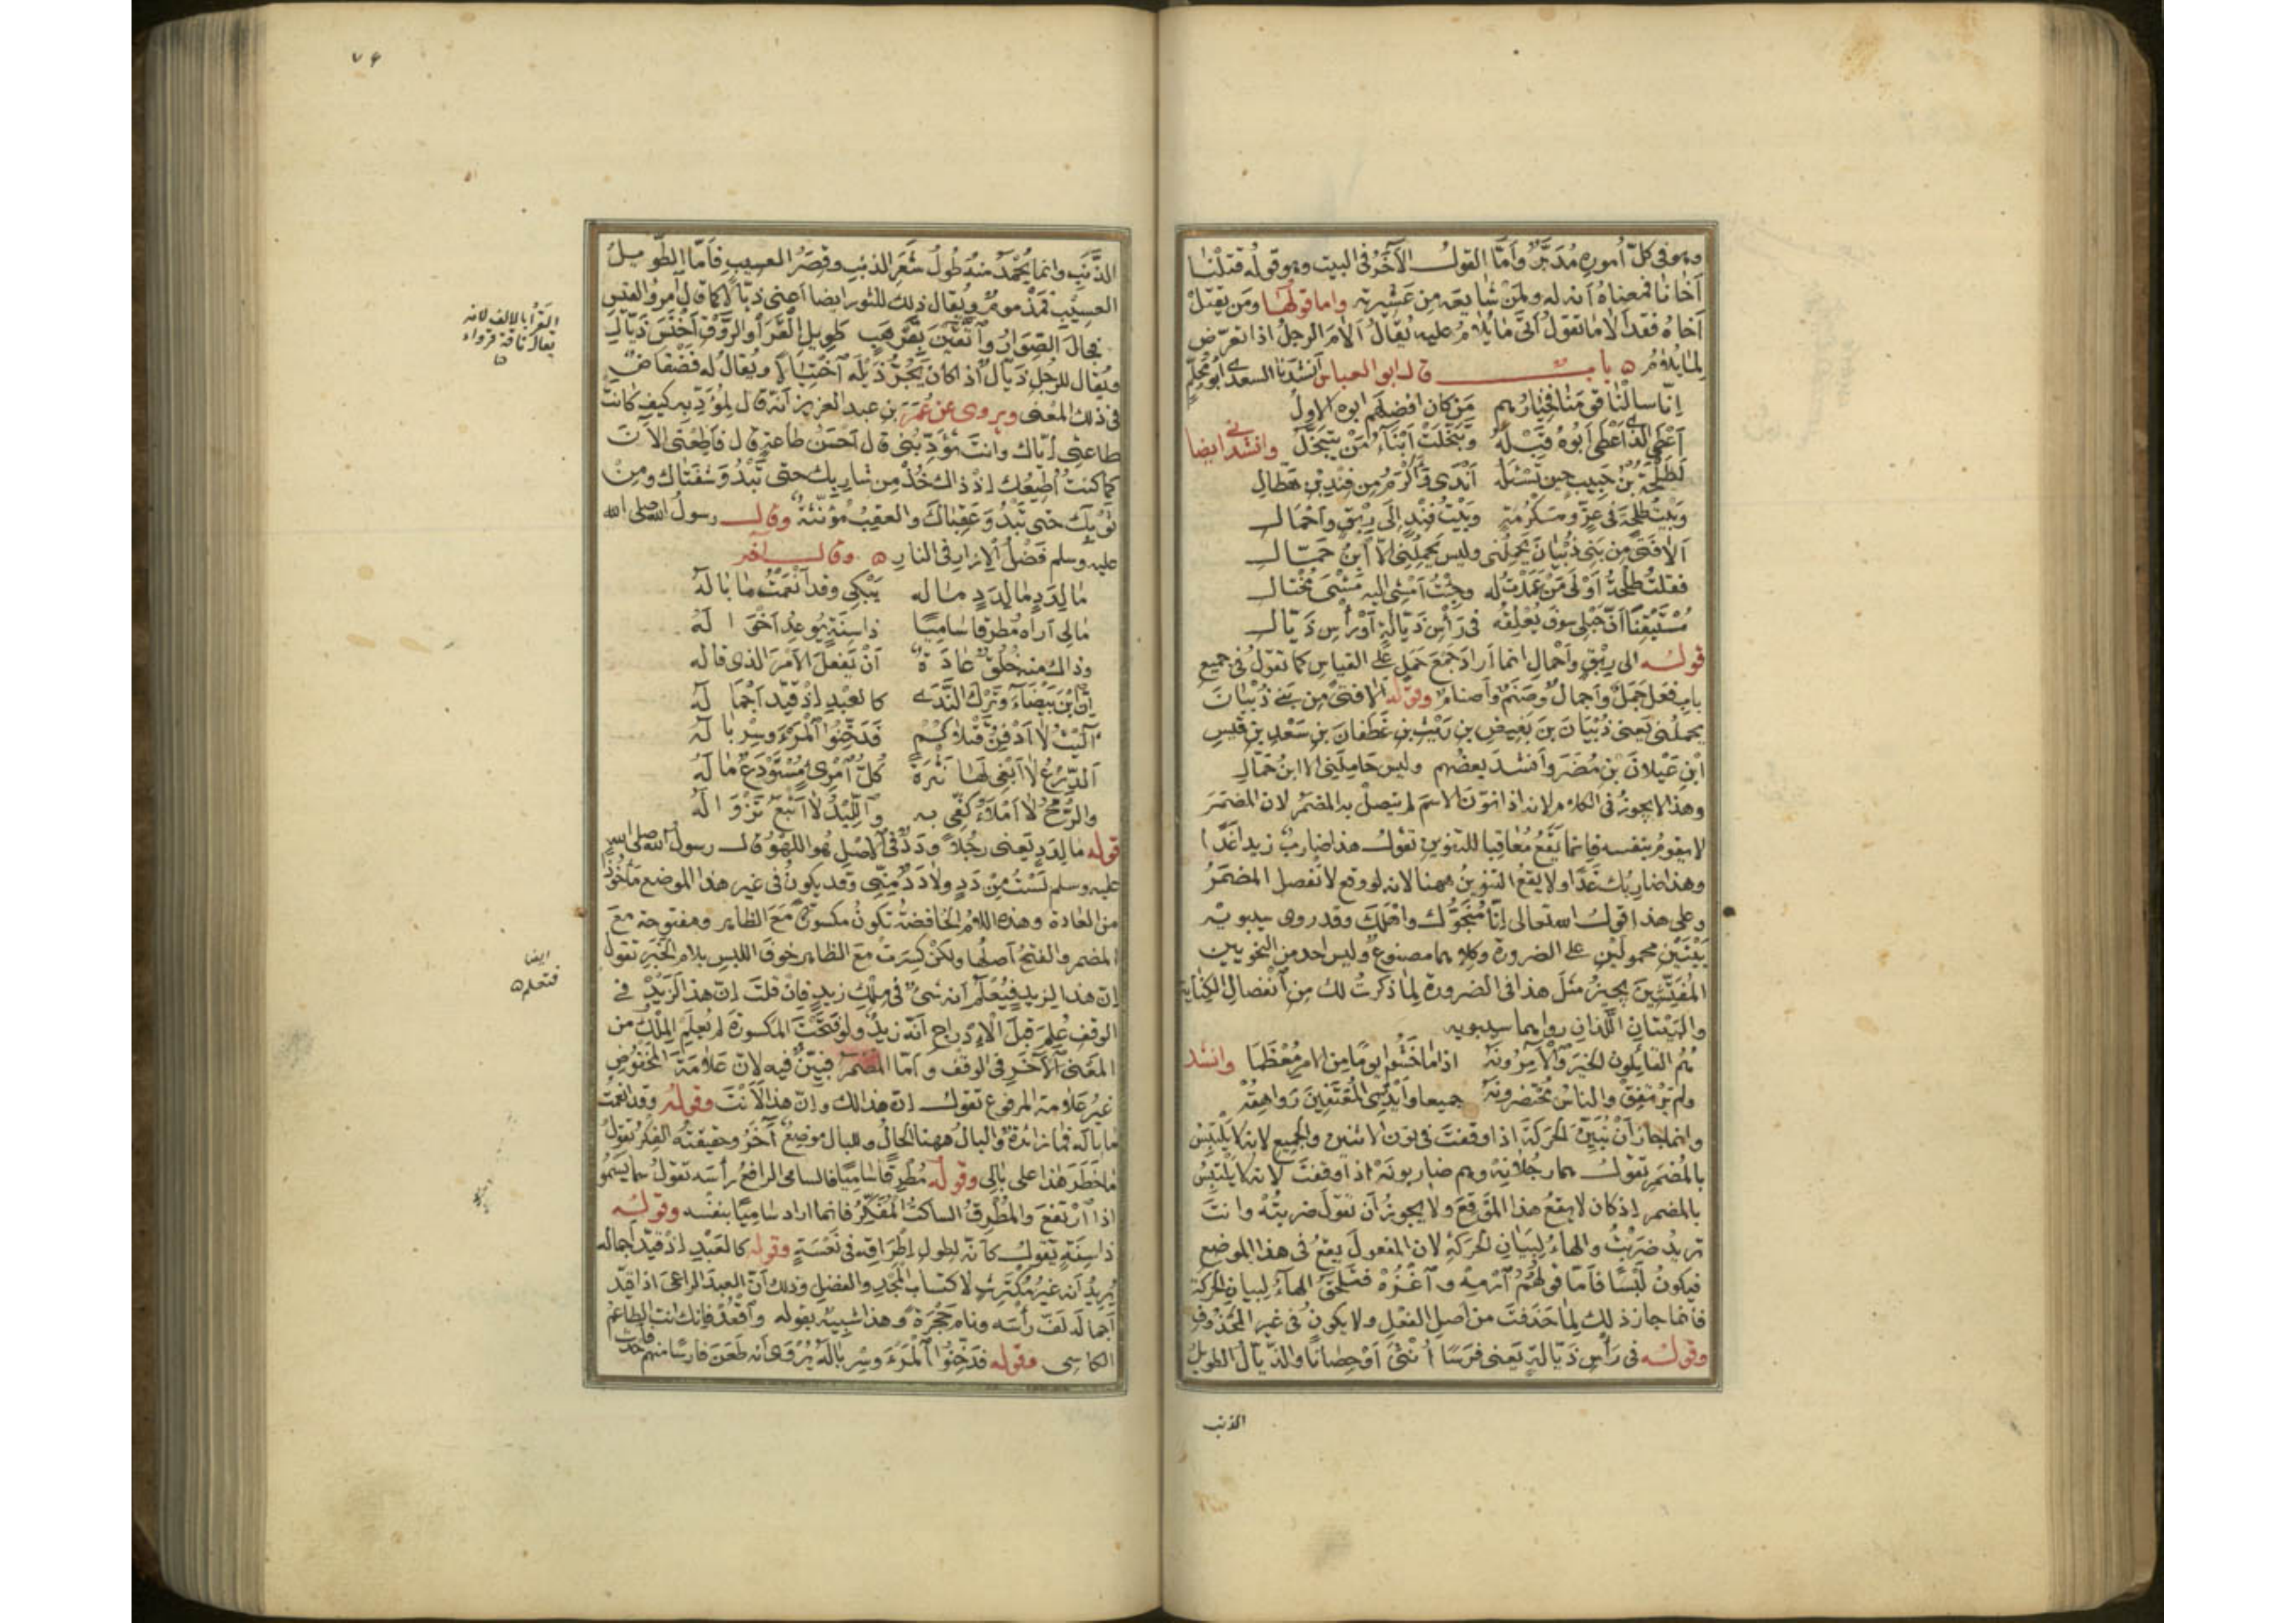 وهو في كلّ أموره مُدَبَّرٌ وأمّا القول الآخر في البيت وهو قوله قتلنا
أخانا فمعناه أنه له ولمن شايعه من عشيرته واما قولها ومن يقتل
أخاه فقد ألاما تقول أتى ما يُلام عليه يُقال ألام الرجلُ اذا تعرّض
لما يُلام ه باب قال ابو العباس أنشدنا السعدي ابو محلّم
إنا سألنا قومنا فخيارهم مَن كان افضلهم ابوه الاول
أعطى الذي أعطى ابوه قبله وتبخّلت أبناء من يتبخّل وانشدني ايضا
لطلحة بن حبيب حين تسئله أندى وأكرم من فند بن هطال
وبيت طلحة في عزّ ومكرمة وبيت فند إلى ربق واحمال
ألا فتى من بني ذبيان يحملني وليس يحملني إلا ابن حمّال
فقلت طلحة أولى من عمدت له وجئت أمشي اليه مشي مختال
مستيقنا أنّ حبلي سوف يعلقه في رأس ذيّالة أو رأس ذيّال
قوله الى ربق وأحمال انما أراد جمع حمل على القياس كما تقول في جميع
باب فعل جمل وأجمال وصنم وأصنام وقوله ألا فتى من بني ذبيان
يحملني يعني ذبيان بن بغيض بن ريث بن غطفان بن سعد بن قيس
ابن عيلان بن مضر وأنشد بعضهم وليس حاملني الا ابن حمّال
وهذا لا يجوز في الكلام لانه اذا نوّن الاسم لم يتصل به المضمر لان المضمر
لا يقوم بنفسه فإنما يقع معاقبا للتنوين تقول هذا ضارب زيدا غدا
وهذا ضاربك غدا ولا يقع التنوين ههنا لانه لو وقع لانفصل المضمر
وعلى هذا قول الله تعالى إنّا منجّوك واهلك وقد روى سيبويه
بيتين محمولين على الضرورة وكلاهما مصنوع وليس احد من النحويين
المفتّشين يجيز مثل هذا في الضرورة لما ذكرت لك من انفصال الكناية
والبيتان اللذان رواهما سيبويه
هم القائلون الخير والآمرونه اذا ما خشوا يوما من الامر معظما وانشد
ولم يرتفق والناس محتضرونه جميعا وأيدي المعتفين رواهقه
وانما جاز أن تبيّن الحركة اذا وقفت في نون الاثنين والجميع لانه لا يلتبس
بالمضمر تقول هما رجلانه وهم ضاربونه اذا وقفت لانه لا يلتبس
بالمضمر إذ كان لا يقع هذا الموقع ولا يجوز أن تقول ضربته وانت
تريد ضربت والهاء لبيان الحركة لان المفعول يقع في هذا الموضع
فيكون لبسا فأمّا قولهم ارمه واغزه فتلحق الهاء لبيان الحركة
فانما جاز ذلك لما حذفت من اصل الفعل ولا يكون في غير المحذوف
وقوله في رأس ذيّالة يعني فرسا أنثى أو حصانا والذيّال الطويل
الذنب
٧٤
الذنب وانما يُحمد منه طول شعر الذنب وقصر العسيب فأمّا الطويل
العسيب فمذموم ويُقال ذلك للثور ايضا أعني ذيّالا كما قال امرؤ القيس
فجال الصوار واتّقين بقرهب طويل القرا والروق أخنس ذيّال
ويقال للرجل ذيّال اذا كان يجرّ ذيله اختيالا ويُقال له فضفاض
في ذلك المعنى ويروى عن عمر بن عبد العزيز أنه قال لمؤدّبه كيف كانت
طاعتي إيّاك وانت تؤدّبني قال أحسن طاعة قال فأطعني الآن
كما كنت أطيعك إذ ذاك خذ من شاربك حتى تبدو شفتاك ومن
ثوبك حتى تبدو عقباك والعقب مؤنثة وقال رسول الله صلى الله
عليه وسلم فضل الإزار في النار ه وقال آخر
ما لدد ما لدد ما له يبكي وقد أنعمت ما باله
ما لي أراه مطرقا ساميا ذا سنة يوعد أخواله
وذاك منه خلق عادة أن يفعل الأمر الذي قاله
إنّ ابن بيضاء وترك الندى كالعبد إذ قيّد أجماله
آليت لا أدفن قتلاكم فدخّنوا المرء وسرباله
الدرع لا أبغي لها نثرة كلّ امرئ مستودع ماله
والرمح لا أملأ كفّي به واللبد لا أتبع تزواله
قوله ما لدد يعني رجلا ودد في الاصل هو اللهو قال رسول الله صلى الله
عليه وسلم لست من دد ولا دد منّي وقد يكون في غير هذا الموضع مأخوذا
من العادة وهذه اللام الخافضة تكون مكسورة مع الظاهر ومفتوحة مع
المضمر والفتح أصلها ولكن كسرت مع الظاهر خوف اللبس بلام الخبر تقول
إن هذا لزيد فيُعلم أنه شيء في ملك زيد فإن قلت إنّ هذا لزيد في
الوقف عُلم قبل الإدراج أنه زيد ولو فتحت المكسورة لم يُعلم الملك من
المعنى الآخر في الوقف وأمّا المضمر فبيّن فيه لان علامة المخفوض
غير علامة المرفوع تقول إن هذا لك وإن هذا لأنت وقوله وقد أنعمت
ما باله فما زائدة والبال ههنا الحال وللبال موضع آخر وحقيقته الفكر تقول
ما خطر هذا على بالي وقوله مطرقا ساميا فالسامي الرافع رأسه تقول سما يسمو
اذا ارتفع والمطرق الساكت المفكّر فانما اراد ساميا بنفسه وقوله
ذا سنة يقول كأنه لطول إطراقه في نعسة وقوله كالعبد إذ قيّد اجماله
يريد أنه غير مكترث لاكتساب المجد والفضل وذلك أنّ العبد الراعي اذا قيّد
أجماله لفّ رأسه ونام حجرة وهذا شبيه بقوله واقعد فإنك انت الطاعم
الكاسي وقوله فدخّنوا المرء وسرباله يروى أنه طعن فارسا منهم فأحدث
القرا بالالف لانه
يقال ناقة قرواء
ه
ايضا
فتعلم ه